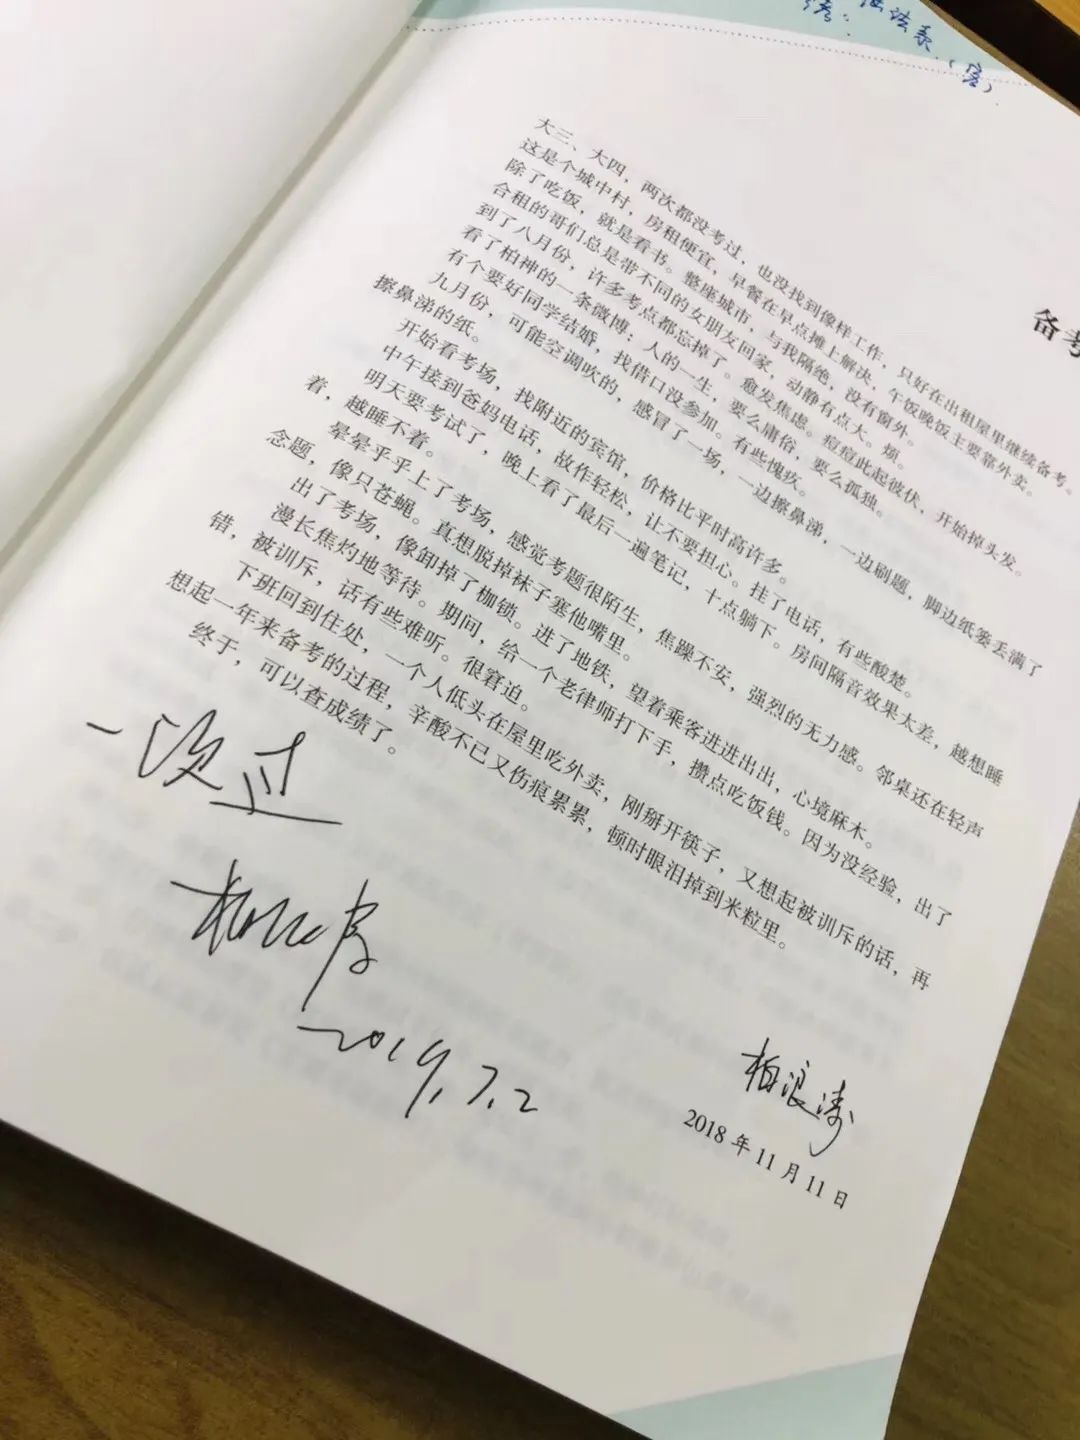 法系
（宫）
备考
大三、大四，两次都没考过，也没找到像样工作，只好在出租屋里继续备考。
这是个城中村，房租便宜，早餐在早点摊上解决，午饭晚饭主要靠外卖。
除了吃饭，就是看书。整座城市，与我隔绝，没有窗外。
合租的哥们总是带不同的女朋友回家，动静有点大。烦。
到了八月份，许多考点都忘掉了。愈发焦虑。痘痘此起彼伏，开始掉头发。
看了柏神的一条微博：人的一生，要么庸俗，要么孤独。
有个要好同学结婚，找借口没参加。有些愧疚。
九月份，可能空调吹的，感冒了一场，一边擦鼻涕，一边刷题，脚边纸篓丢满了
擦鼻涕的纸。
开始看考场，找附近的宾馆，价格比平时高许多。
中午接到爸妈电话，故作轻松，让不要担心。挂了电话，有些酸楚。
明天要考试了，晚上看了最后一遍笔记，十点躺下。房间隔音效果太差，越想睡
着，越睡不着。
晕晕乎乎上了考场，感觉考题很陌生，焦躁不安，强烈的无力感。邻桌还在轻声
念题，像只苍蝇。真想脱掉袜子塞他嘴里。
出了考场，像卸掉了枷锁。进了地铁，望着乘客进进出出，心境麻木。
漫长焦灼地等待。期间，给一个老律师打下手，攒点吃饭钱。因为没经验，出了
错，被训斥，话有些难听。很窘迫。
下班回到住处，一个人低头在屋里吃外卖，刚掰开筷子，又想起被训斥的话，再
想起一年来备考的过程，辛酸不已又伤痕累累，顿时眼泪掉到米粒里。
终于，可以查成绩了。
一次过
柏浪涛
2019.7.2
柏浪涛
2018年11月11日